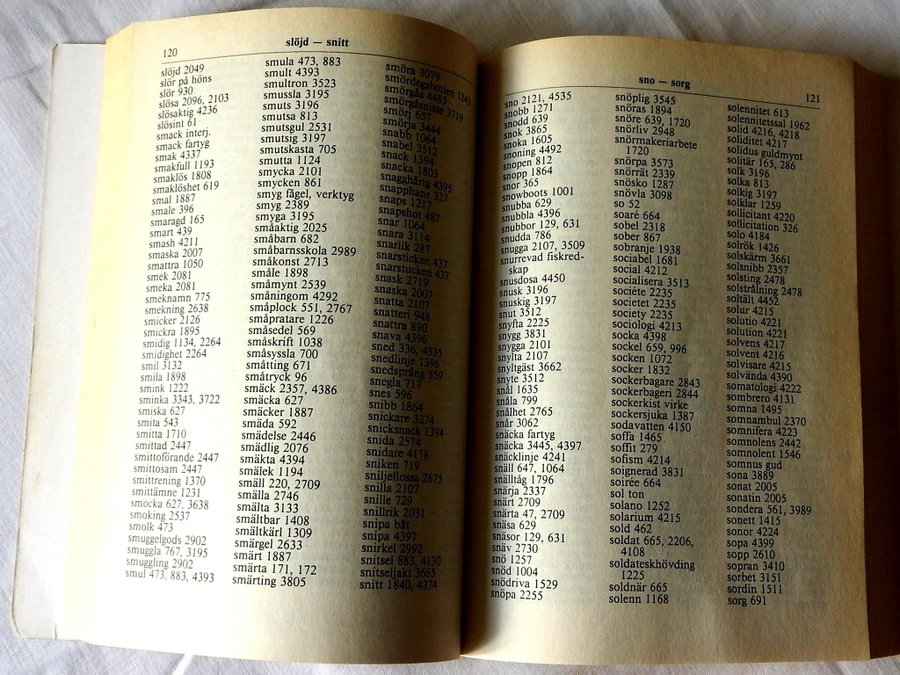 120
slöjd — snitt
slöjd 2049
slör på höns
slör 930
slösa 2096, 2103
slösaktig 4236
slösint 61
smack interj.
smack fartyg
smak 4337
smakfull 1193
smaklös 1808
smaklöshet 619
smal 1887
smale 396
smaragd 165
smart 439
smash 4211
smaska 2007
smattra 1050
smek 2081
smeka 2081
smeknamn 775
smekning 2638
smicker 2126
smickra 1895
smidig 1134, 2264
smidighet 2264
smil 3132
smila 1898
smink 1222
sminka 3343, 3722
smiska 627
smita 543
smitta 1710
smittad 2447
smittoförande 2447
smittosam 2447
smittrening 1370
smittämne 1231
smocka 627, 3638
smoking 2537
smolk 473
smuggelgods 2902
smuggla 767, 3195
smuggling 2902
smul 473, 883, 4393
smula 473, 883
smult 4393
smultron 3523
smussla 3195
smuts 3196
smutsa 813
smutsgul 2531
smutsig 3197
smutskasta 705
smutta 1124
smycka 2101
smycken 861
smyg fågel, verktyg
smyg 2389
smyga 3195
småaktig 2025
småbarn 682
småbarnsskola 2989
småkonst 2713
småle 1898
småmynt 2539
småningom 4292
småplock 551, 2767
småpratare 1226
småsedel 569
småskrift 1038
småsyssla 700
småtting 671
småtryck 96
smäck 2357, 4386
smäcka 627
smäcker 1887
smäda 592
smädelse 2446
smädlig 2076
smäkta 4394
smälek 1194
smäll 220, 2709
smälla 2746
smälta 3133
smältbar 1408
smältkärl 1309
smärgel 2633
smärt 1887
smärta 171, 172
smärting 3805
smöra 3079
smördegsbotten 1243
smörgås 4485
smörgåsnisse 3719
smörj 657
smörja 3444
snabb 1064
snabel 3512
snack 1394
snacka 1803
snagghång 4395
snapphane 327
snaps 1217
snapshot 487
snar 1064
snara 3114
snarlik 287
snarsticken 437
snarstucken 437
snask 2719
snaska 2007
snatta 2107
snatteri 948
snattra 890
snava 4396
sned 336, 4335
snedlinje 1396
snedsprång 559
snegla 717
snes 596
snibb 1864
snickare 3274
snicksnack 1394
snida 2574
snidare 4178
sniken 719
sniljeflossa 2675
snilla 2107
snille 729
snillrik 2031
snipa båt
snipa 4397
snirkel 2992
snitsel 883, 4130
snitseljakt 3665
snitt 1840, 4374
sno — sorg
121
sno 2121, 4535
snobb 1271
snodd 639
snok 3865
snoka 1605
snoning 4492
snopen 812
snopp 1864
snor 365
snowboots 1001
snubba 629
snubbla 4396
snubbor 129, 631
snudda 786
snugga 2107, 3509
snurrevad fiskred-
skap
snusdosa 4450
snusk 3196
snuskig 3197
snut 3512
snyfta 2225
snygg 3831
snygga 2101
snylta 2107
snyltgäst 3662
snyte 3512
snål 1635
snåla 799
snålhet 2765
snår 3062
snäcka fartyg
snäcka 3445, 4397
snäcklinje 4241
snäll 647, 1064
snälltåg 1796
snärja 2337
snärt 2709
snärta 47, 2709
snäsa 629
snäsor 129, 631
snäv 2730
snö 1257
snöd 1004
snödriva 1529
snöpa 2255
snöplig 3545
snöras 1894
snöre 639, 1720
snörliv 2948
snörmakeriarbete
1720
snörpa 3573
snörrät 2339
snösko 1287
snövla 3098
so 52
soaré 664
sobel 2318
sober 867
sobranje 1938
sociabel 1681
social 4212
socialisera 3513
société 2235
societet 2235
society 2235
sociologi 4213
socka 4398
sockel 659, 996
socken 1072
socker 1832
sockerbagare 2843
sockerbageri 2844
sockerkist virke
sockersjuka 1387
sodavatten 4150
soffa 1465
soffit 279
sofism 4214
soignerad 3831
soirée 664
sol ton
solano 1252
solarium 4215
sold 462
soldat 665, 2206,
4108
soldateskhövding
1225
soldnär 665
solenn 1168
solennitet 613
solennitetssal 1962
solid 4216, 4218
soliditet 4217
solidus guldmynt
solitär 165, 286
solk 3196
solka 813
solkig 3197
solklar 1259
sollicitant 4220
sollicitation 326
solo 4184
solrök 1426
solskärm 3661
solsnibb 2357
solsting 2478
solstrålning 2478
soltält 4452
solur 4215
solutio 4221
solution 4221
solvens 4217
solvent 4216
solvisare 4215
solvända 4390
somatologi 4222
sombrero 4131
somna 1495
somnambul 2370
somnifera 4223
somnolens 2442
somnolent 1546
somnus gud
sona 3889
sonat 2005
sonatin 2005
sondera 561, 3989
sonett 1415
sonor 4224
sopa 4399
sopp 2610
sopran 3410
sorbet 3151
sordin 1511
sorg 691